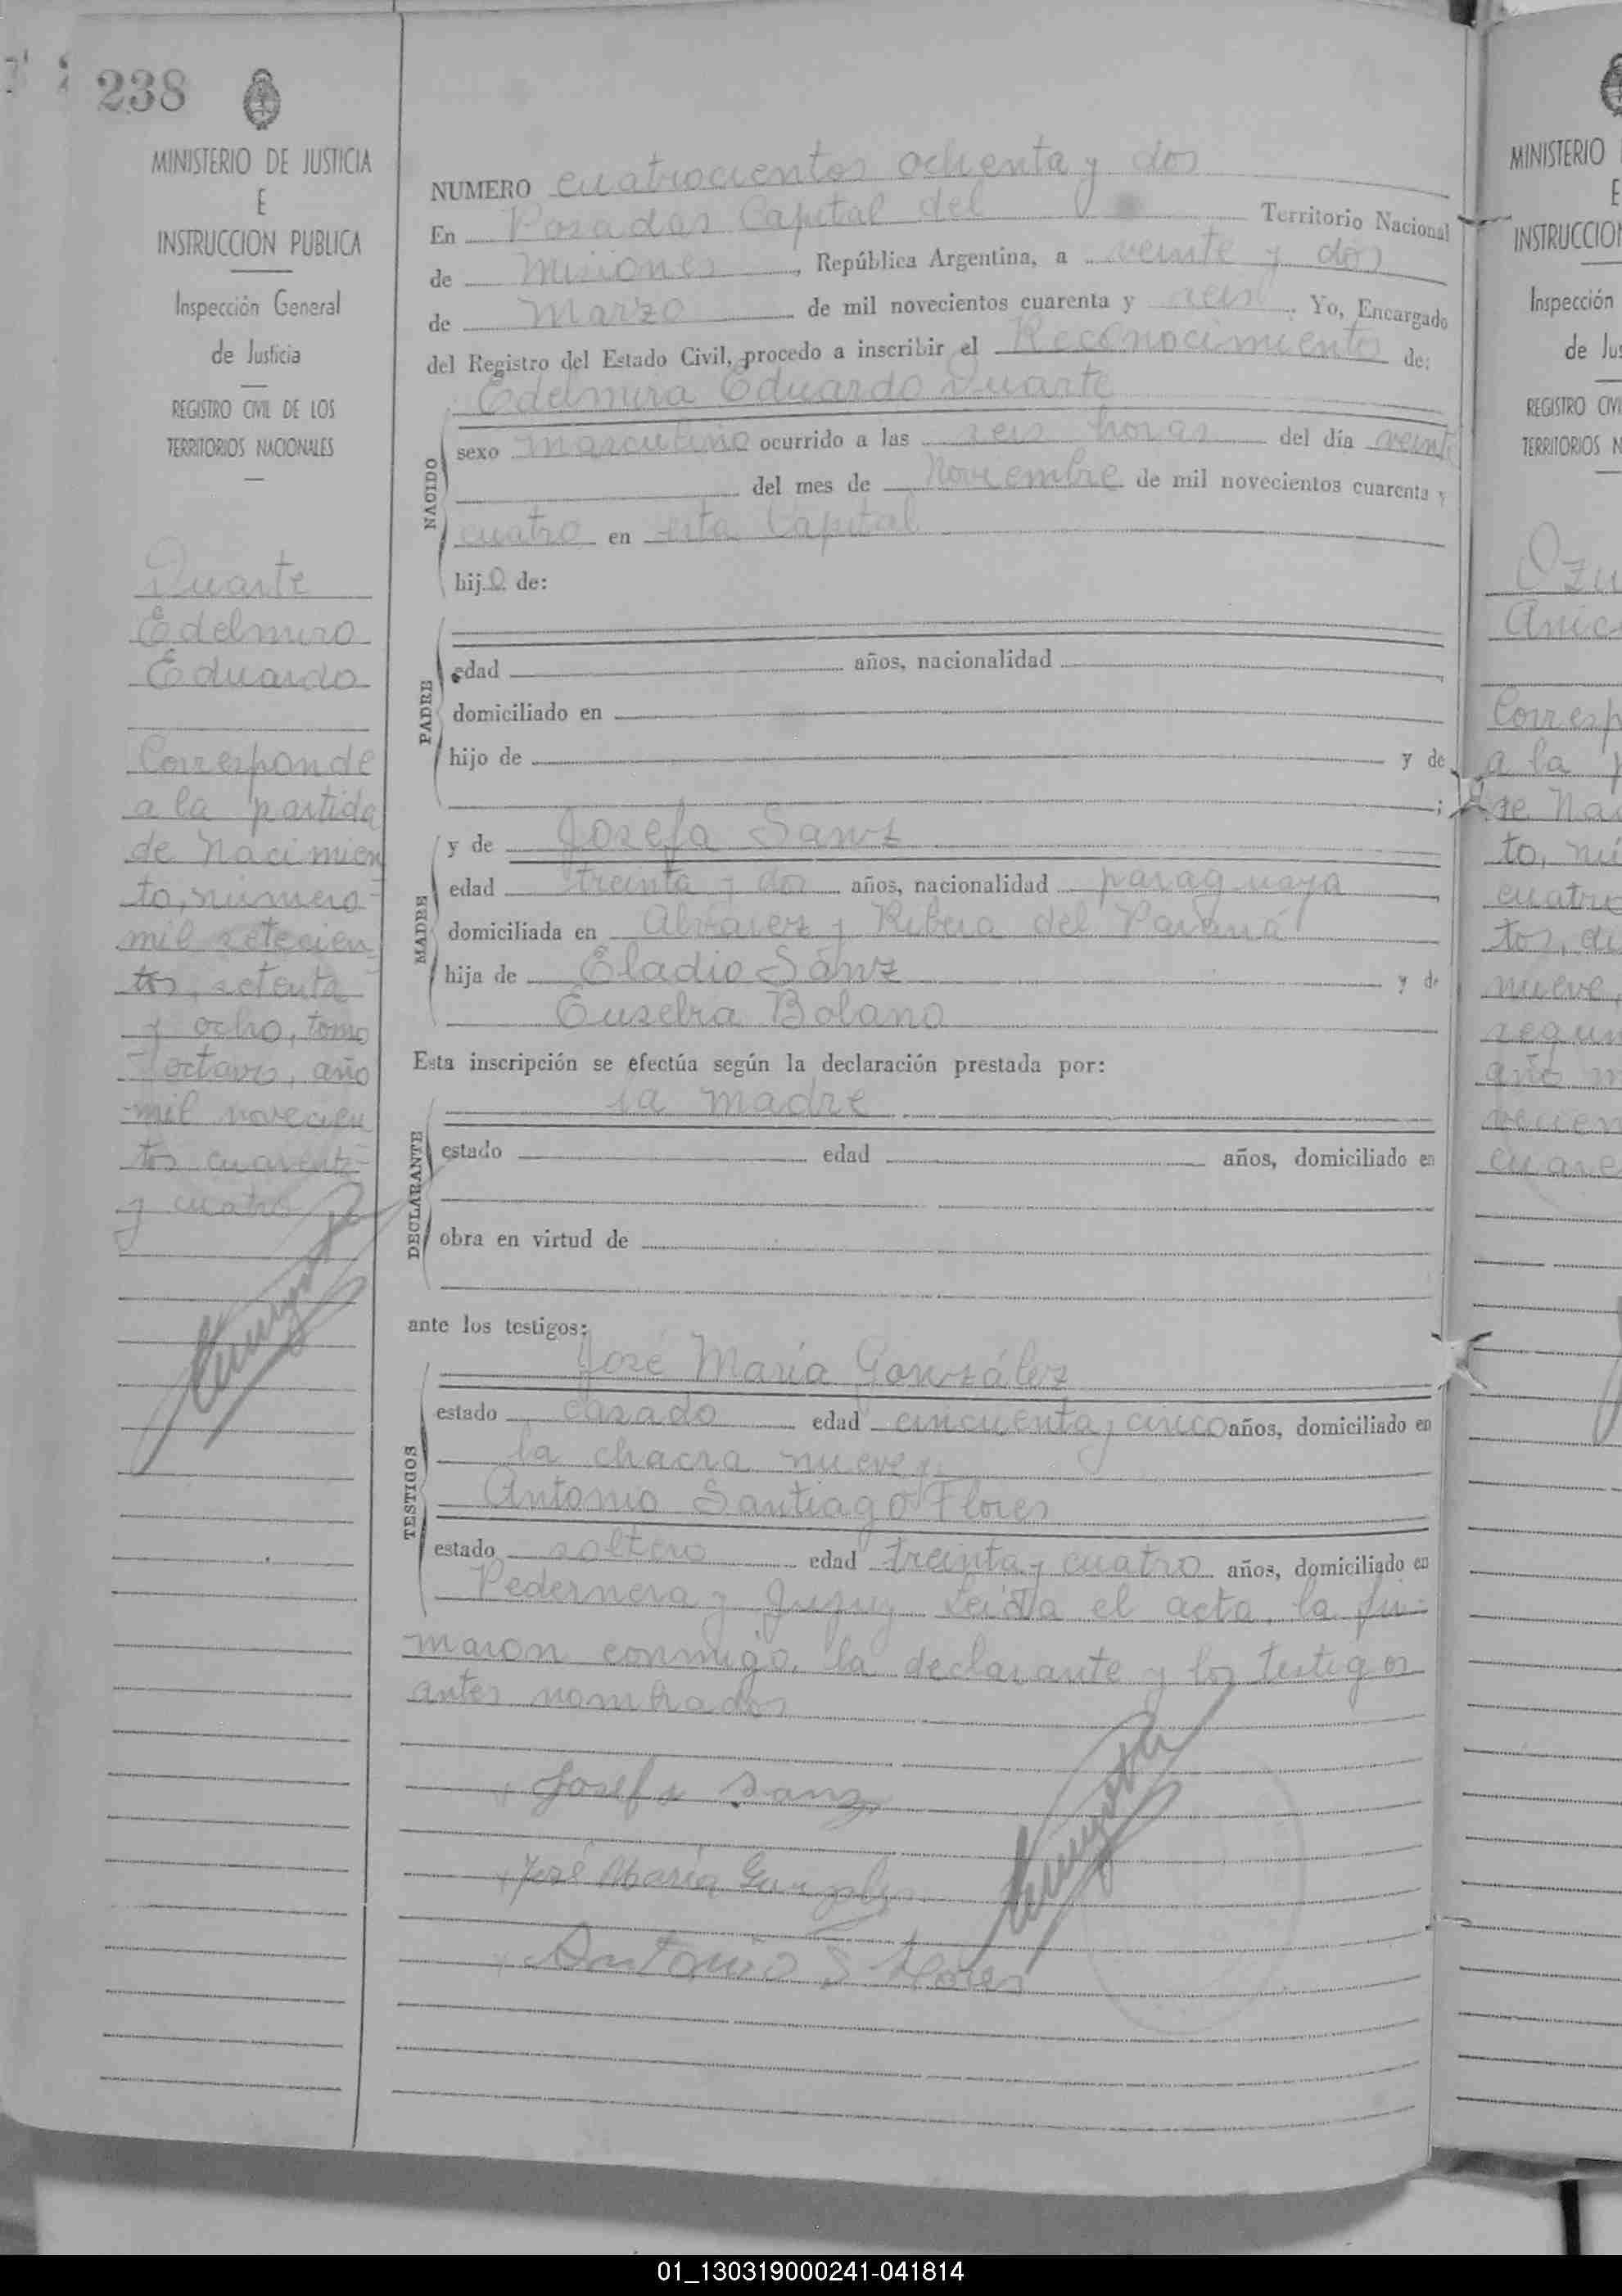 238
MINISTERIO DE JUSTICIA
E
INSTRUCCION PUBLICA
Inspección General
de Justicia
REGISTRO CIVIL DE LOS
TERRITORIOS NACIONALES
Duarte
Edelmiro
Eduardo
Corresponde
a la partida
de Nacimien
to, número
mil setecien
tos, setenta
y ocho, tomo
octavo, año
mil novecien
tos cuarenta
y cuatro
NUMERO cuatrocientos ochenta y dos
En Posadas Capital del Territorio Nacional
de Misiones, República Argentina, a veinte y dos
de Marzo de mil novecientos cuarenta y seis. Yo, Encargado
del Registro del Estado Civil, procedo a inscribir el Reconocimiento de:
Edelmira Eduardo Duarte
NACIDO
sexo masculino ocurrido a las seis horas del día veinte
del mes de Noviembre de mil novecientos cuarenta y
cuatro en esta Capital
hijo de:
PADRE
edad años, nacionalidad
domiciliado en
hijo de y de
;
MADRE
y de Josefa Sanz
edad treinta y dos años, nacionalidad paraguaya
domiciliada en y Ribera del Paraná
hija de Eladio Sánz y de
Eusebia Bolano
Esta inscripción se efectúa según la declaración prestada por:
la madre
DECLARANTE
estado edad años, domiciliado en
obra en virtud de
ante los testigos:
José María González
TESTIGOS
estado casado edad cincuenta y cinco años, domiciliado en
la chacra nueve y
Antonio Santiago Flores
estado soltero edad treinta y cuatro años, domiciliado en
Pedernera y Jujuy Leida el acta, la fir-
maron conmigo, la declarante y los testigos
antes nombrados
Josefa Sanz
José María Gonzalez
Antonio S Flores
MINISTERIO
E
INSTRUCCION
Inspección
de Jus
REGISTRO CIVI
TERRITORIOS N
Corresp
a la p
de Nac
to, nú
cuatro
tos, di
nueve,
segun
año m
vecien
cuare
01_130319000241-041814